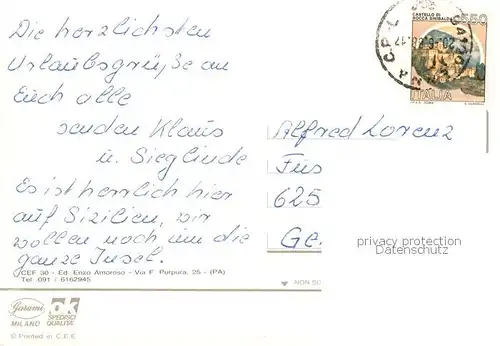 Die herzlichsten
Urlaubsgrüße an
Euch alle
senden Klaus
u. Sieglinde
Es ist herrlich hier
auf Sizilien, wir
wollen noch um die
ganze Insel.
CEF 30 - Ed. Enzo Amoroso - Via F. Purpura, 25 - (PA)
Tel. 091 / 6162945
Garami
MILANO
OK
SPEDISCI
QUALITA'
© Printed in C.E.E.
CASTELLO DI
ROCCA SINIBALDA
550
ITALIA
Alfred Lorenz
Füs
625
Ge
privacy protection
Datenschutz
NON SC